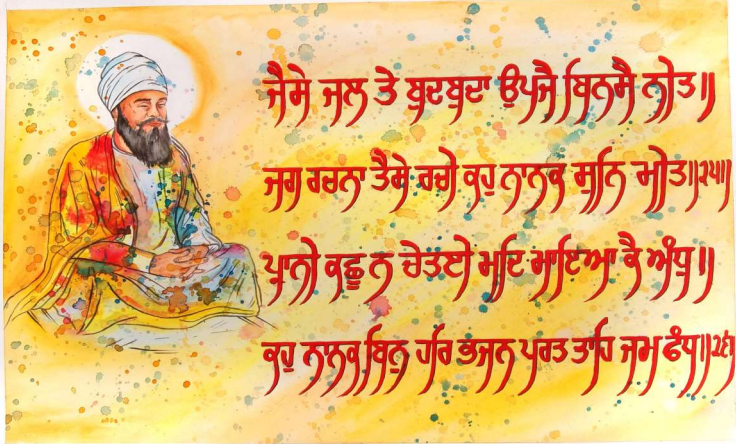 ਜੈਸੇ ਜਲ ਤੇ ਬੁਦਬੁਦਾ ਉਪਜੈ ਬਿਨਸੈ ਨੀਤ॥
ਜਗ ਰਚਨਾ ਤੈਸੇ ਰਚੀ ਕਹੁ ਨਾਨਕ ਸੁਨਿ ਮੀਤ॥੨੫॥
ਪ੍ਰਾਨੀ ਕਛੂ ਨ ਚੇਤਈ ਮਦਿ ਮਾਇਆ ਕੈ ਅੰਧੁ॥
ਕਹੁ ਨਾਨਕ ਬਿਨੁ ਹਰਿ ਭਜਨ ਪਰਤ ਤਾਹਿ ਜਮ ਫੰਧ॥੨੬॥